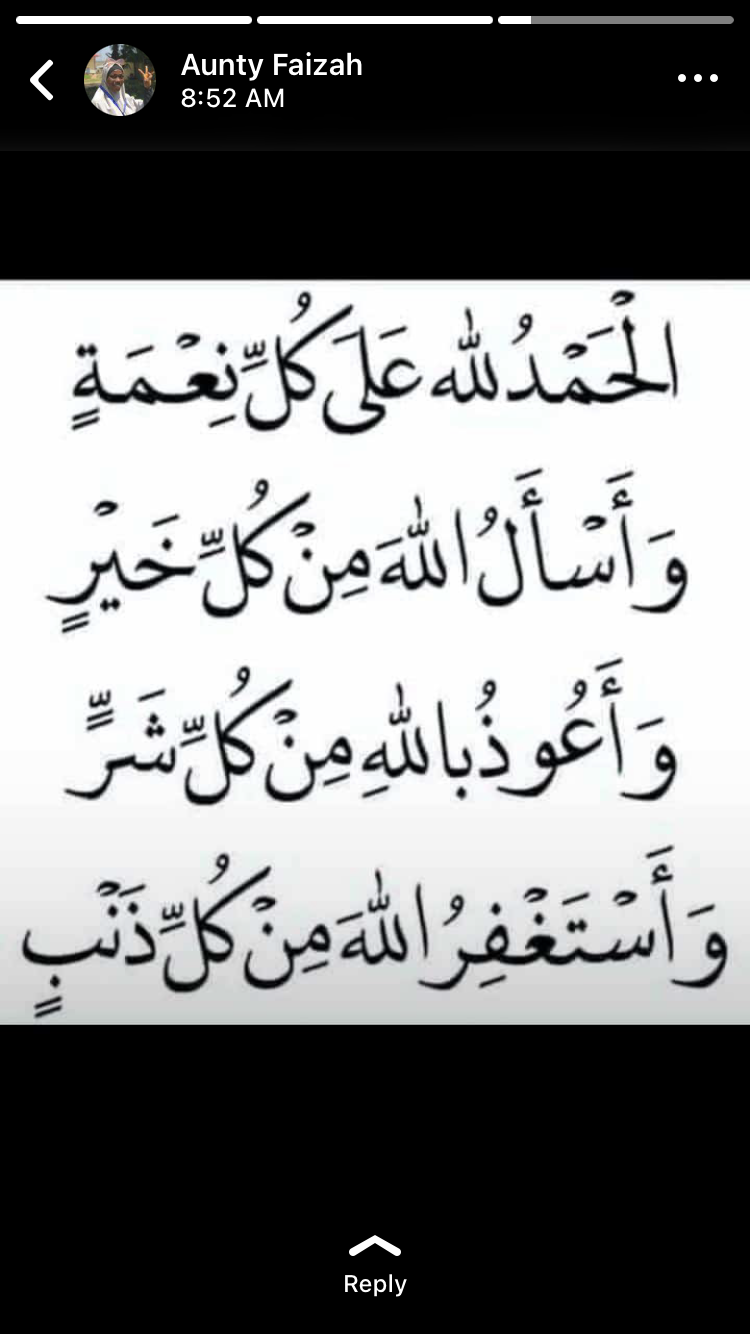 Aunty Faizah
8:52 AM
الْحَمْدُ لله عَلَى كُلِّ نِعْمَةٍ
وَأَسْأَلُ اللهَ مِنْ كُلِّ خَيْرٍ
وَأَعُوذُ بِاللهِ مِنْ كُلِّ شَرٍّ
وَأَسْتَغْفِرُ اللهَ مِنْ كُلِّ ذَنْبٍ
Reply